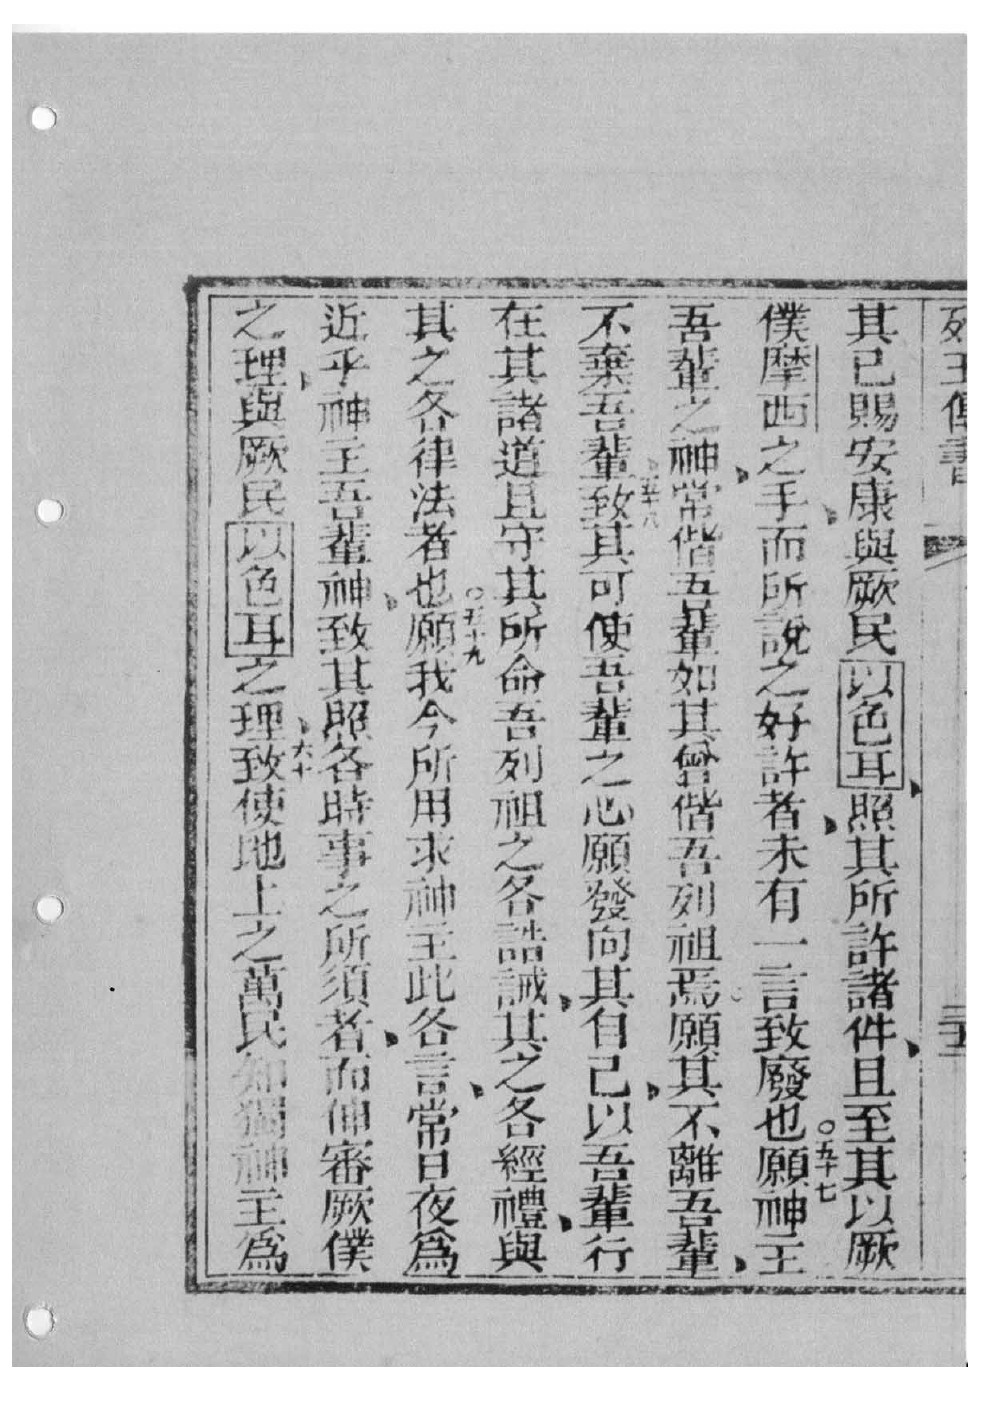 列王傳書
其已賜安康與厥民以色耳、照其所許諸件、且至其以厥
僕摩西之手、而所說之好許者、未有一言致廢也○五十七願神主
吾輩之神、常偕吾輩如其曾偕吾列祖焉願其不離吾輩、
不棄吾輩五十八致其可使吾輩之心願發向其自己、以吾輩行
在其諸道且守其所命吾列祖之各誥誡、其之各經禮、與
其之各律法者也○五十九願我今所用求神主此各言、常日夜爲
近乎神主吾輩神、致其照各時事之所須者、而伸審厥僕
之理、與厥民以色耳之理、六十致使地上之萬民知獨神主爲